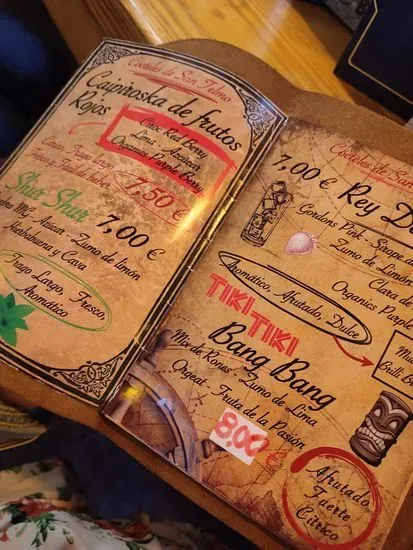 Cócteles de San Telmo
Caipiroska de frutos
Rojos
Ciroc Red Berry
Lima - Azúcar
Organics Purple Berry
7,50 €
Shur Shur
7,00 €
MG - Azúcar - Zumo de limón
Hierbabuena y Cava
Trago Largo, Fresco,
Aromático
Cócteles de Sa
7,00 €
Rey D
Gordons Pink - Sirope d
Zumo de Lim
Clara de
Organics Purple
Aromático, Afrutado, Dulce
TIKI TIKI
Bang Bang
Mix de Rones - Zumo de Lima
Orgeat - Fruta de la Pasión
8,00 €
Afrutado
Fuerte
Cítrico